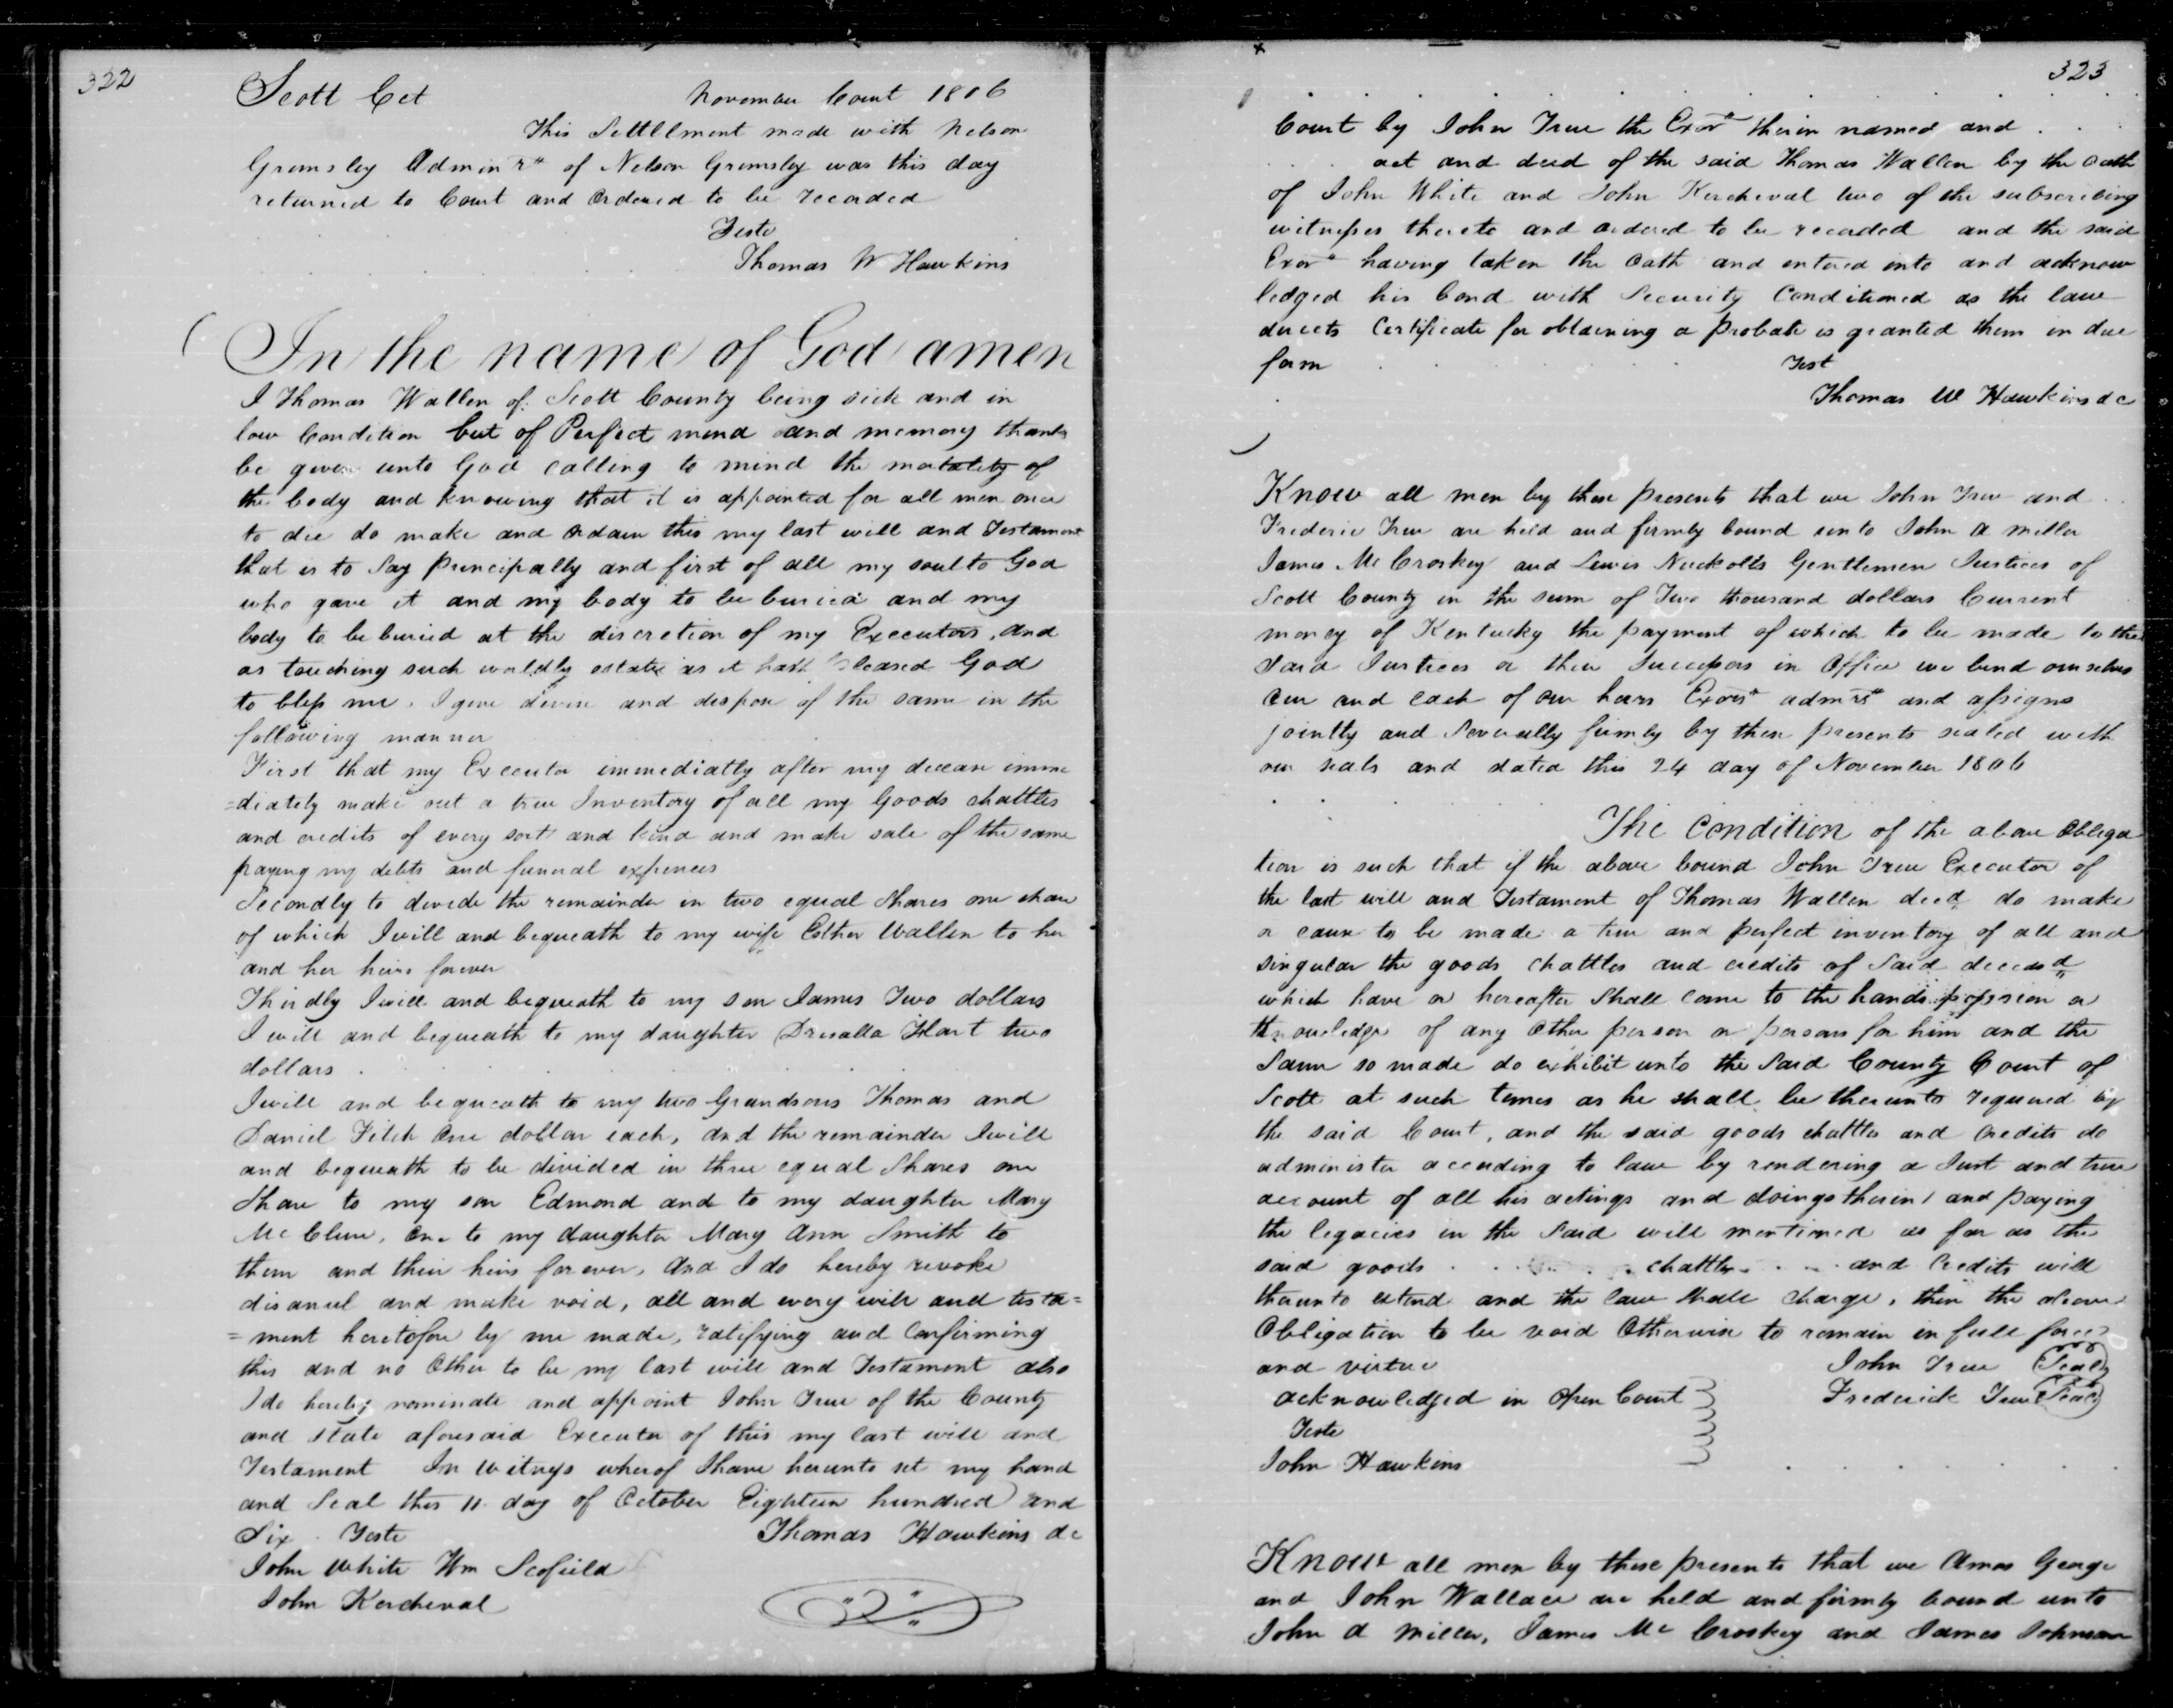 322
Scott Cct November Court 1806
This Settllment made with Nelson
Gremsley Adminrs of Nelson Gremsley was this day
returned to Court and Ordered to be recorded
Teste
Thomas W Hawkins
In the name of God amen
I Thomas Wallen of Scott County being sick and in
low Condition but of Perfect mind and memory thanks
be given unto God calling to mind the motality of
the body and knowing that it is appointed for all men once
to die do make and ordain this my last will and Testament
that is to Say principally and first of all my soul to God
who gave it and my body to be buried and my
body to be buried at the discretion of my Executors, and
as touching such worldly estate as it hath pleased God
to bless me. I give devise and dispose of the same in the
following manner
First that my Executor immediatly after my decease imme
=diately make out a true Inventory of all my Goods chattles
and credits of every sort and kind and make sale of the same
paying my debts and funeral expences
Secondly to devide the remainder in two equal Shares one share
of which I will and bequeath to my wife Esther Wallen to her
and her heirs forever
Thirdly I will and bequeath to my son James Two dollars
I will and bequeath to my daughter Drusalla Hart two
dollars
I will and bequeath to my two Grandsons Thomas and
Daniel Fitch One dollar each, and the remainder I will
and bequeath to be divided in three equal Shares one
Share to my son Edmond and to my daughter Mary
Mc Clure, One to my daughter Mary Ann Smith to
them and their heirs forever, And I do hereby revoke
disanul and make void, all and every will and testa=
=ment heretofore by me made, ratifying and Confirming
this and no Other to be my last will and Testament also
I do hereby nominate and appoint John True of the County
and State aforesaid Executor of this my last will and
Testament In Witness wherof I have herunto set my hand
and Seal this 11 day of October Eighteen hundred and
Six Teste Thomas Hawkins dc
John White Wm Scofield
John Kercheval
323
Court by John True the Exors therin named and
act and deed of the said Thomas Wallen by the Oath
of John White and John Kercheval two of the subscribing
witnesses thereto and ordered to be recorded and the said
Exors having taken the Oath and entered into and acknow
ledged his bond with Security Conditioned as the law
directs Certificate for obtaining a probate is granted them in due
form Test
Thomas W Hawkins dc
Know all men by these presents that we John True and
Frederic True are held and firmly bound unto John A Miller
James Mc Croskey and Lewis Nuckolls Gentlemen Justices of
Scott County in the sum of Two thousand dollars Current
money of Kentucky the payment of which to be made to the
Said Justices or their Successors in Office we bind ourselves
our and each of our heirs Exors admrs and assigns
jointly and Severally firmly by these presents sealed with
our seals and dated this 24 day of November 1806
The Condition of the above Obliga
tion is such that if the above bound John True Executor of
the last will and Testament of Thomas Wallen decd do make
or cause to be made a true and perfect inventory of all and
singular the goods chattles and credits of Said deceasd
which have or hereafter Shall come to the hands possion or
knowledge of any Other person or persons for him and the
Same so made do exhibit unto the Said County Court of
Scott at such times as he shall be therunto required by
the said Court, and the said goods chattles and credits do
administer according to law by rendering a Just and true
account of all his actings and doings therin and paying
the legacies in the Said will mentioned as far as the
said goods chattles and Credits will
therunto extend and the law Shall charge, then the above
Obligation to be void Otherwise to remain in full force
and virtue John True Seal
acknowledged in Open Court Frederick True Seal
Teste
John Hawkins
Know all men by these presents that we Amos George
and John Wallace are held and firmly bound unto
John A Miller, James Mc Croskey and James Johnson